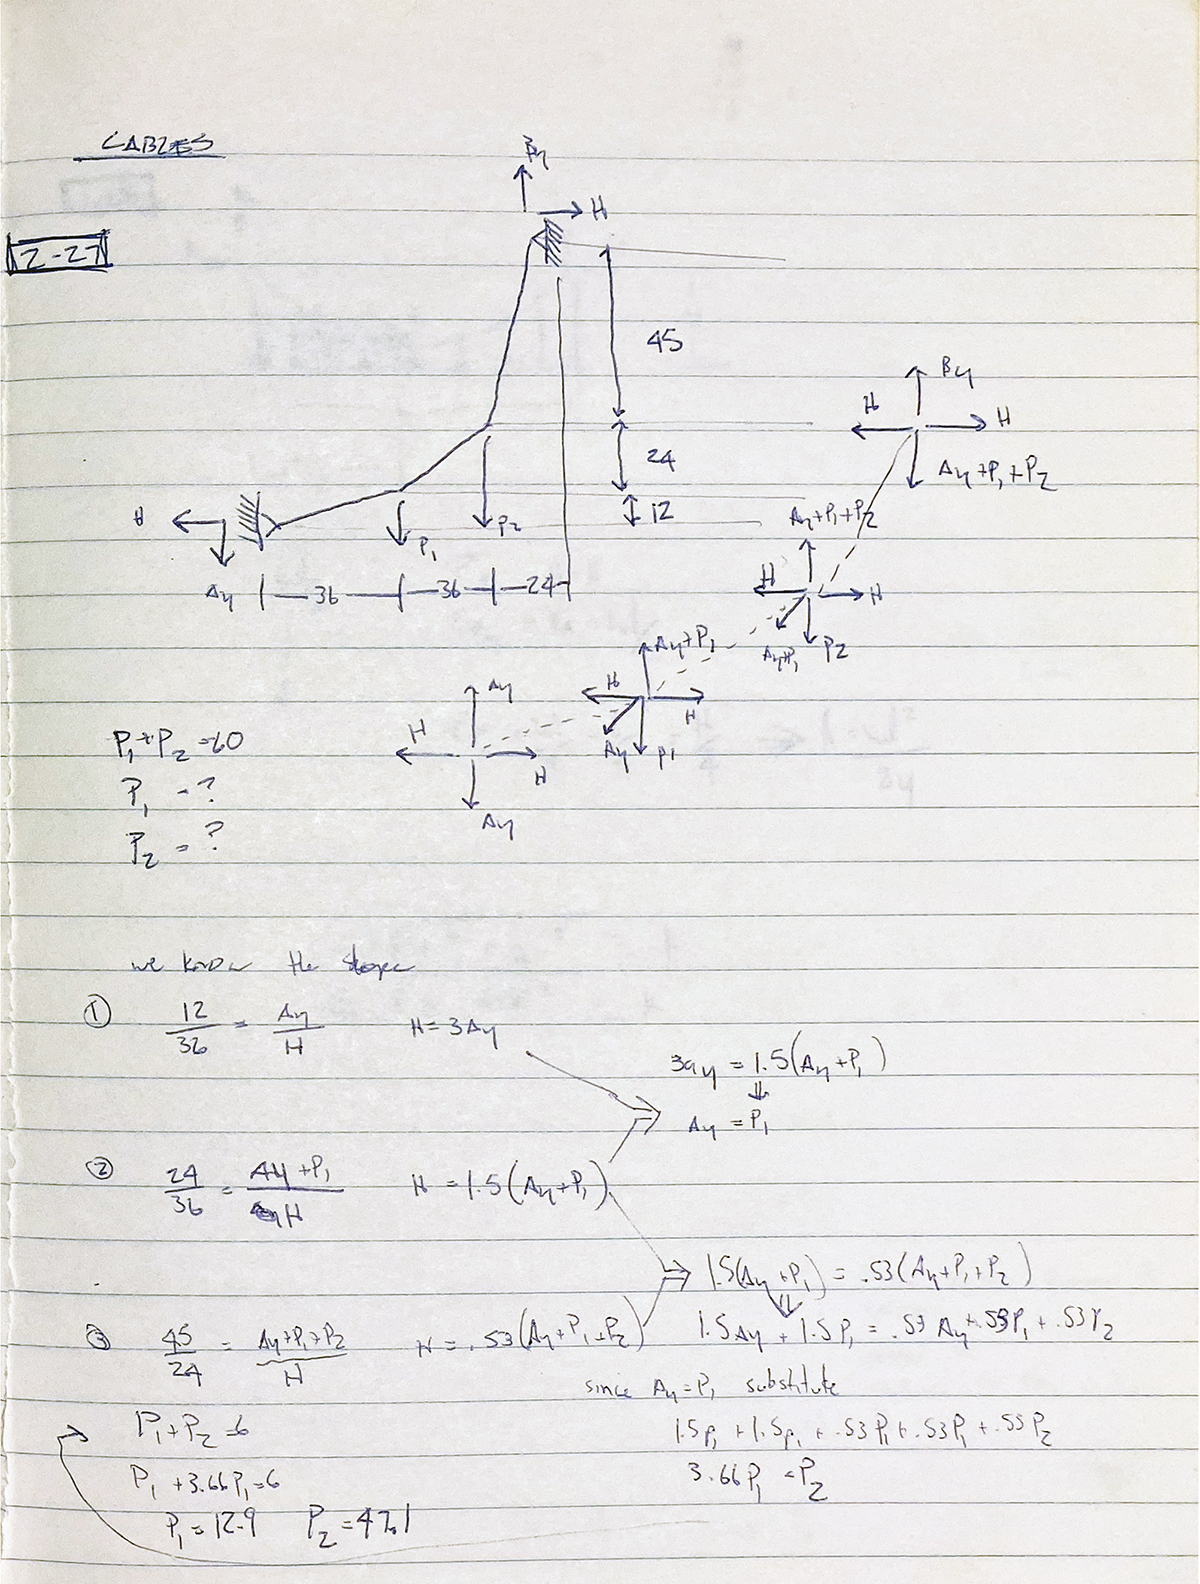 CABLES
By
H
2-27
45
By
H
H
24
Ay+P1+P2
12
H
P1
P2
Ay+P1+P2
Ay
36
36
24
H
H
Ay+P1
Ay+P1
P2
Ay
H
H
H
H
Ay
P1
Ay
P1+P2=60
P1 = ?
P2 = ?
we know the slope
① 12/36 = Ay/H H=3Ay
3ay = 1.5(Ay+P1)
⇓
Ay = P1
② 24/36 = Ay+P1/H H = 1.5(Ay+P1)
1.5(Ay+P1) = .53(Ay+P1+P2)
⇓
③ 45/24 = Ay+P1+P2/H H = .53(Ay+P1+P2) 1.5Ay + 1.5P1 = .53Ay + .53P1 + .53P2
since Ay=P1 substitute
P1+P2=6 1.5P1 + 1.5P1 + .53P1 + .53P1 + .53P2
P1+3.66P1=6 3.66P1 = P2
P1=12.9 P2=47.1